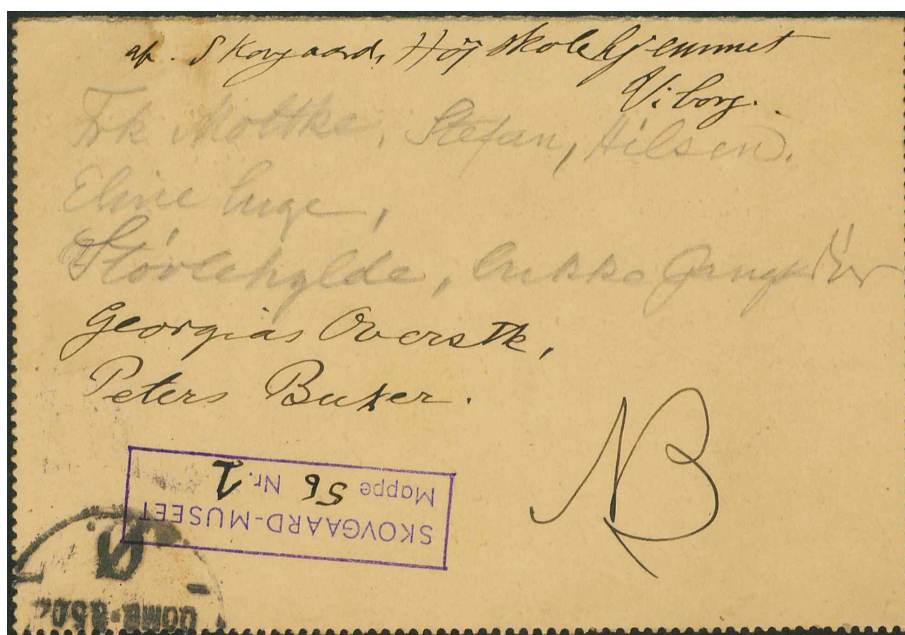 af. Skovgaard, Højskolehjemmet
Viborg.
Frk Moltke, Stefan, Hilsen.
Eline luge,
Støvlehylde, lukke
Georgias Overstk,
Peters Buxer.
NB
SKOVGAARD-MUSEET
Mappe 56 Nr. 2